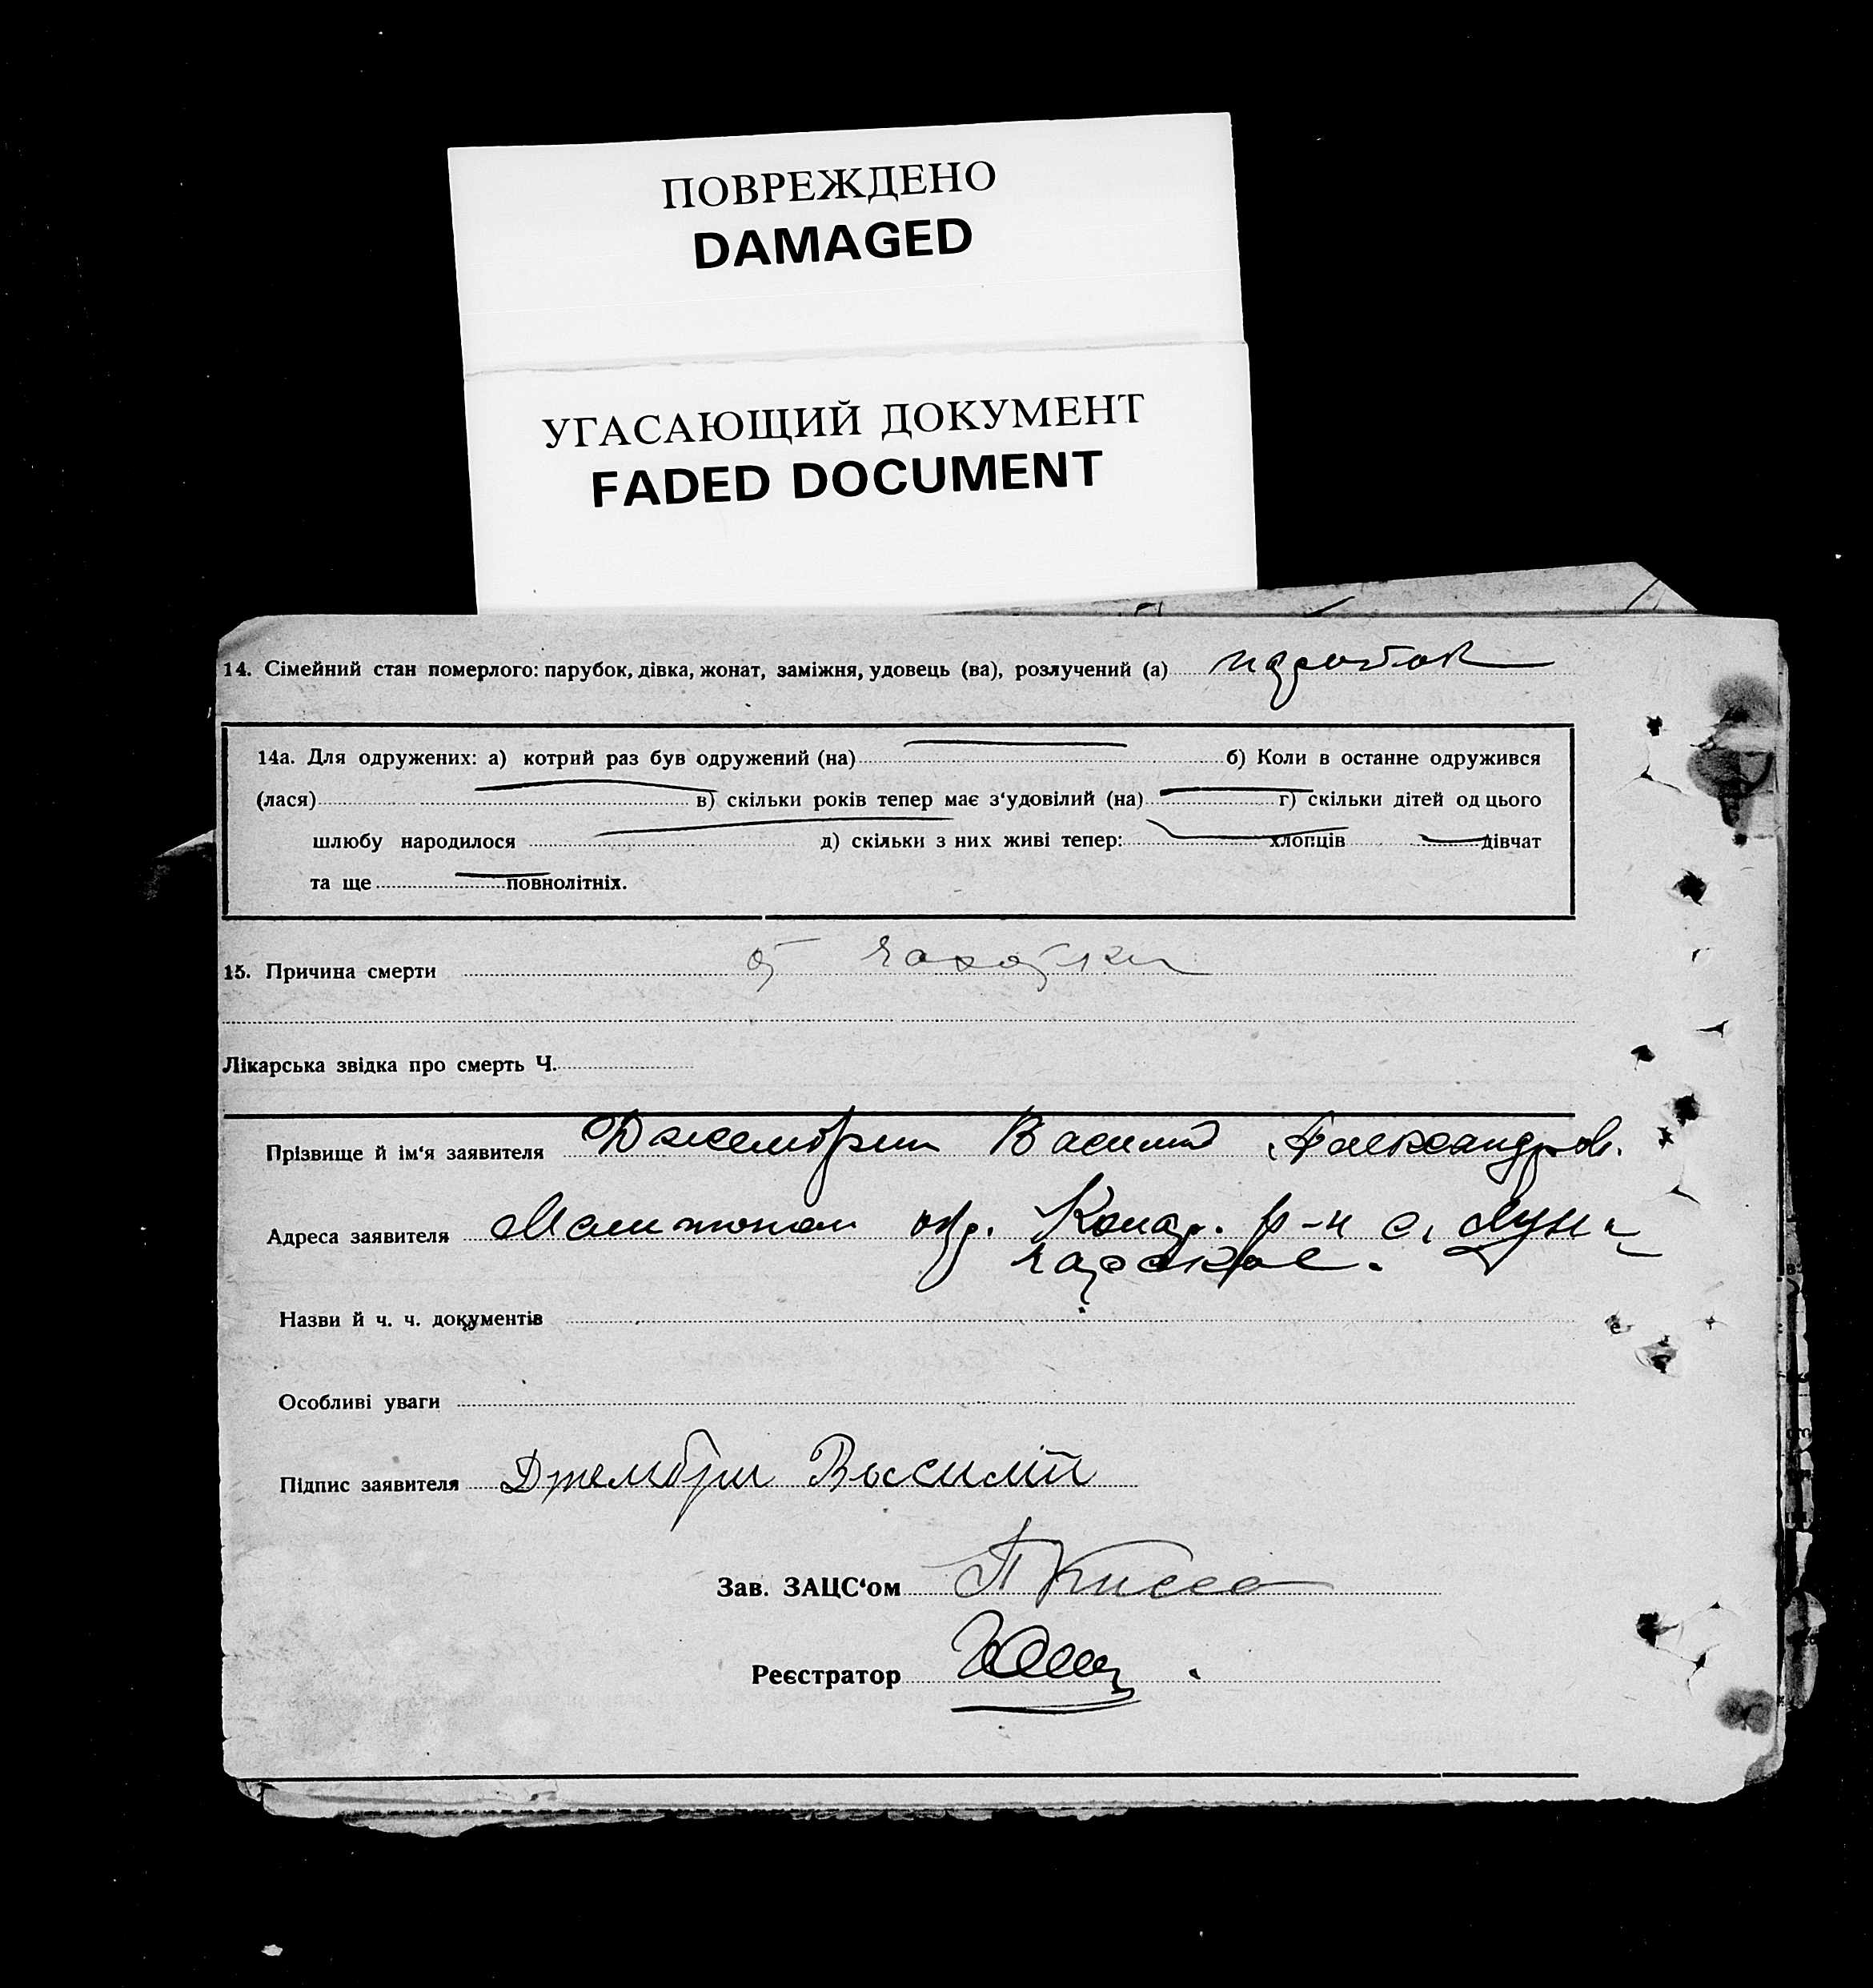 ПОВРЕЖДЕНО
DAMAGED
УГАСАЮЩИЙ ДОКУМЕНТ
FADED DOCUMENT
14. Сімейний стан померлого: парубок, дівка, жонат, заміжня, удовець (ва), розлучений (а) парубок
14а. Для одружених: а) котрий раз був одружений (на) б) Коли в останне одружився
(лася) в) скільки років тепер має з‘удовілий (на) г) скільки дітей од цього
шлюбу народилося д) скільки з них живі тепер: хлопців дівчат
та ще повнолітніх.
15. Причина смерти от чахотки
Лікарська звідка про смерть Ч.
Прізвище й ім‘я заявителя Василий Александров.
Адреса заявителя р-н с. Луна
чарское.
Назви й ч. ч. документів
Особливі уваги
Підпис заявителя Джембри Василий
Зав. ЗАЦС‘ом
Реєстратор